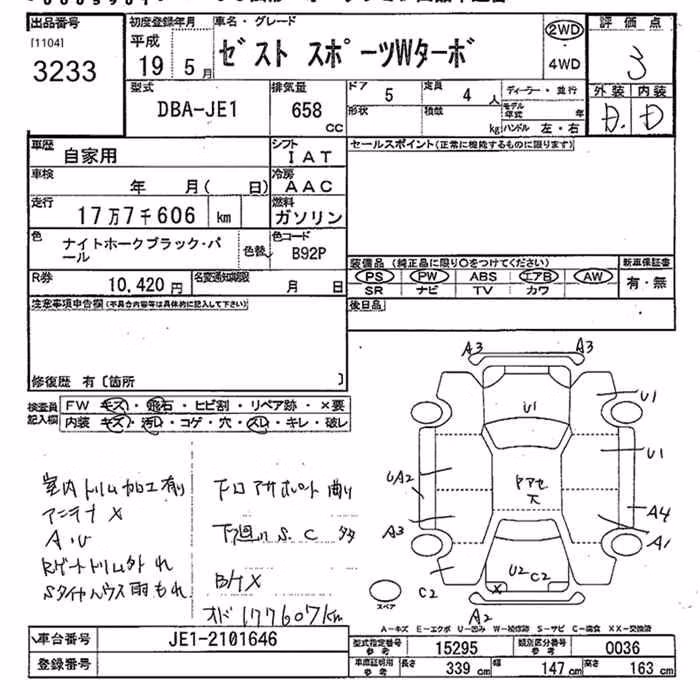 出品番号
[1104]
3233
初度登録年月
平成
19 5月
車名・グレード
ゼスト スポーツWターボ
2WD
4WD
評価点
3
外装 内装
D. D
型式
DBA-JE1
排気量
658
cc
ドア 5
定員 4 人
形状
積載 kg
ディーラー・並行
モデル年式 年
ハンドル 左・右
車歴 自家用
シフト IAT
車検 年 月( 日)
冷房 AAC
走行 17万7千606 km
燃料 ガソリン
色 ナイトホークブラック・パール
色替
色コード B92P
R券 10,420円
名変通知期限 月 日
セールスポイント(正常に機能するものに限ります)
装備品 (純正品に限り○をつけてください)
PS PW ABS エアB AW
SR ナビ TV カワ
新車保証書
有・無
注意事項申告欄(不具合内容等は具体的に記入して下さい)
後日品
修復歴 有〔箇所 〕
検査員記入欄
FW キズ・飛石・ヒビ割・リペア跡・×要
内装 キズ・汚レ・コゲ・穴・スレ・キレ・破レ
室内トリム加工有り
アンテナ X
A・U
Rゲートトリム外れ
Sタイヤハウス雨もれ
下廻りS.C 多
オド177607km
A3 A3
U1 U1
U1
UA2
A3
ドアセ
A4
A1
U2 C2
X
C2
A2
スペア
A-キズ E-エクボ U-凹み W-補修跡 S-サビ C-腐食 XX-交換済
車台番号 JE1-2101646
登録番号
型式指定番号 参考 15295
類別区分番号 参考 0036
車庫証明用 参考
長さ 339 cm
幅 147 cm
高さ 163 cm